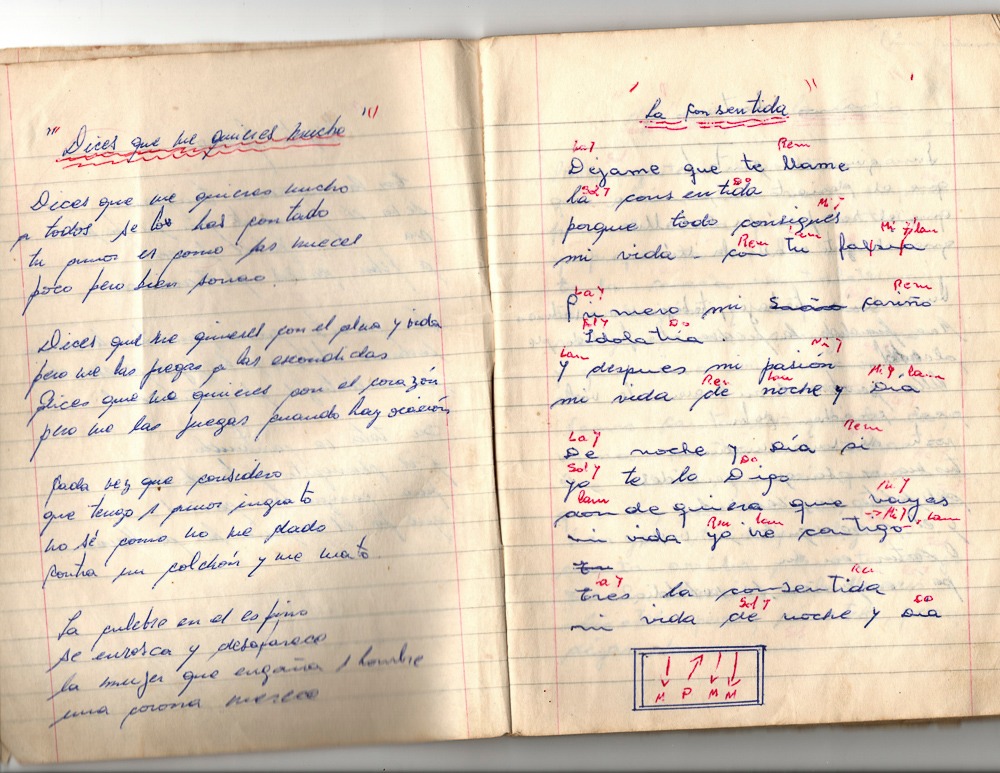 "' Dices que me quieres mucho "'
Dices que me quieres mucho
a todos se los has contado
tu amor es como las nueces
poco pero bien sonao
Dices que me quieres con el alma y vida
pero me las juegas a las escondidas
Dices que me quieres con el corazón
pero me las juegas cuando hay ocación
Cada vez que considero
que tengo 1 amor ingrato
no sé como no me
contra un colchón y me mato
La culebra en el espino
se enrosca y desaparece
la mujer que engaña 1 hombre
una corona merece
La consentida
La7 Rem
Dejame que te llame
Sol7 Do
la consentida
Mi7
porque todo consigues
Rem Lam Mi7 Lam
mi vida - con tu falsia
La7 Rem
Primero mi cariño
Sol7 Do
Idolatria
Lam Mi7
y despues mi pasión
Rem Lam Mi7 Lam
mi vida de noche y Día
La7 Rem
De noche y Día si
Sol7 Do
yo te lo Digo
Lam Mi7
donde quiera que vayas
Rem Lam -> Mi7, Lam
mi vida yo iré contigo
La7 Rem
Eres la consentida
Sol7 Do
mi vida de noche y Día
M P M M